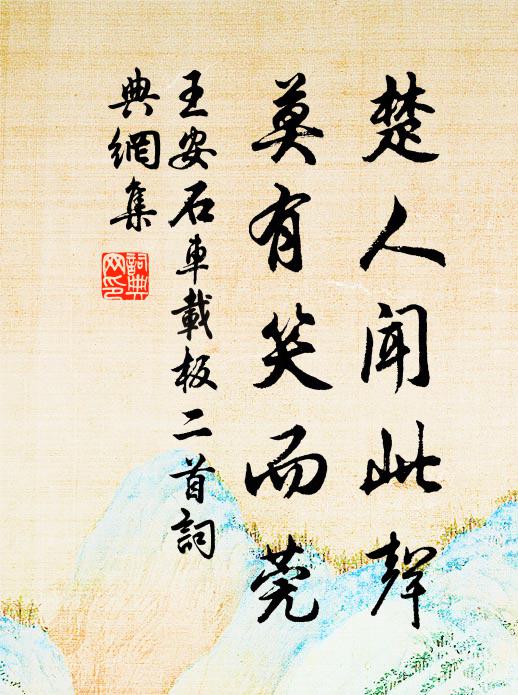 楚人闻此聲
莫有笑而莞
王安石車載板二首詞
典網集
詞典
网印